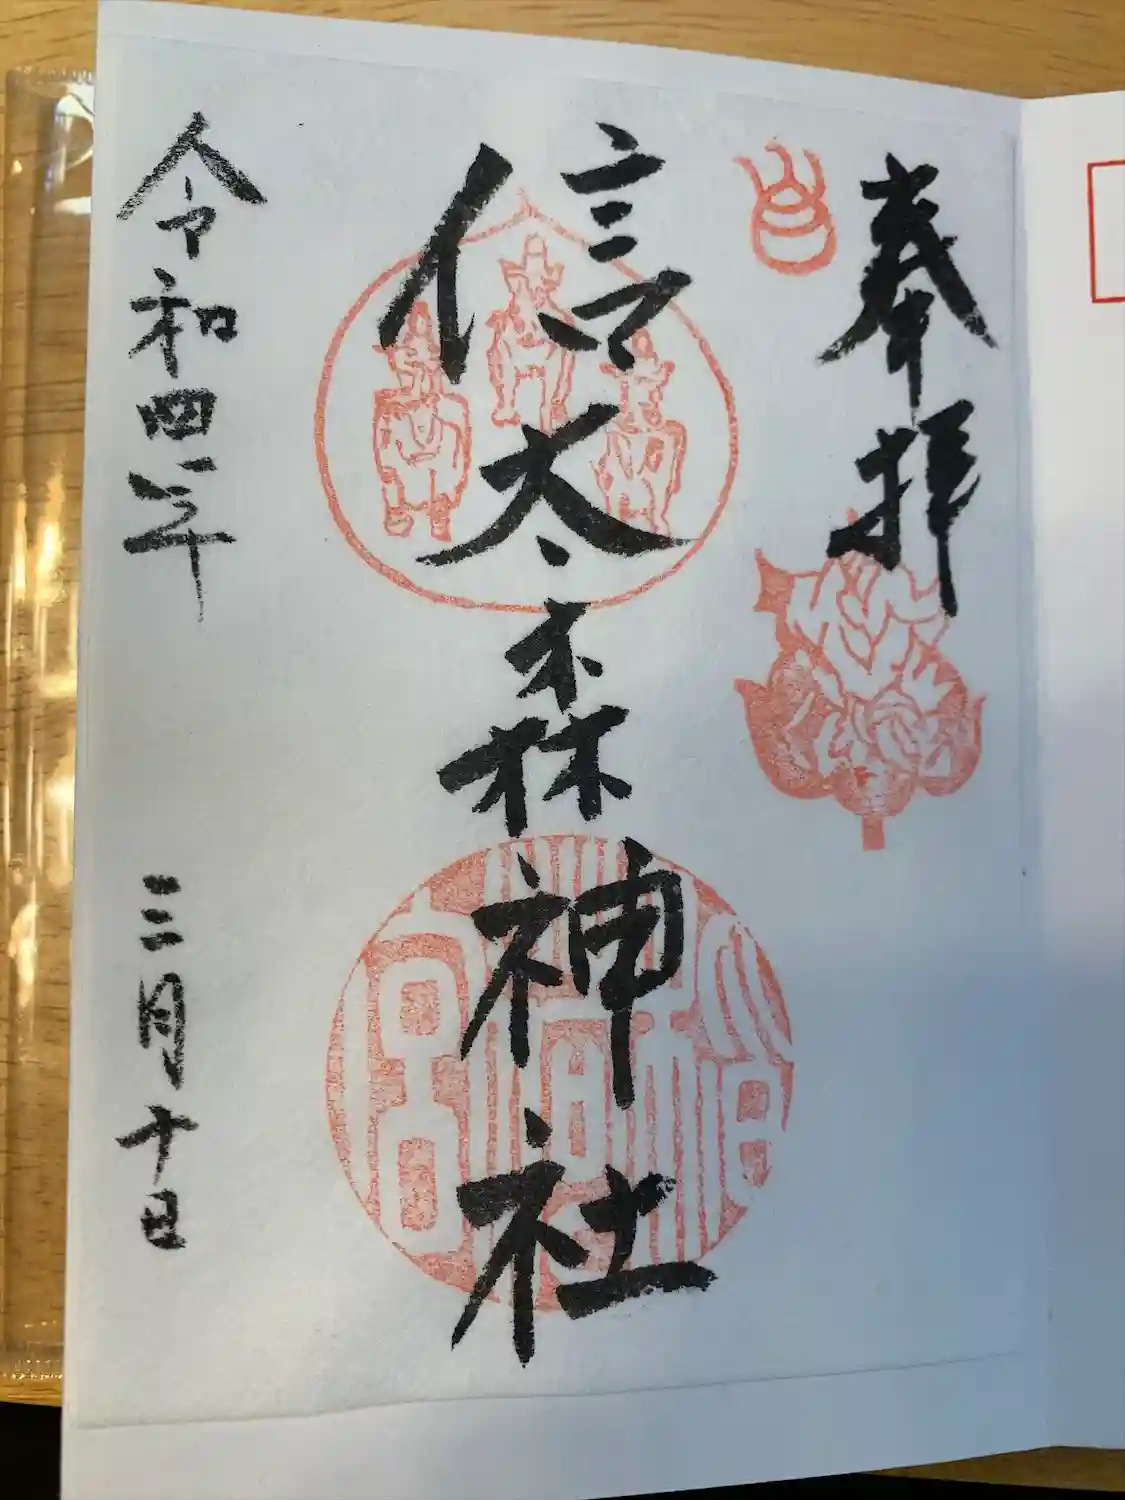 奉拝
信太森神社
令和四年 三月十日